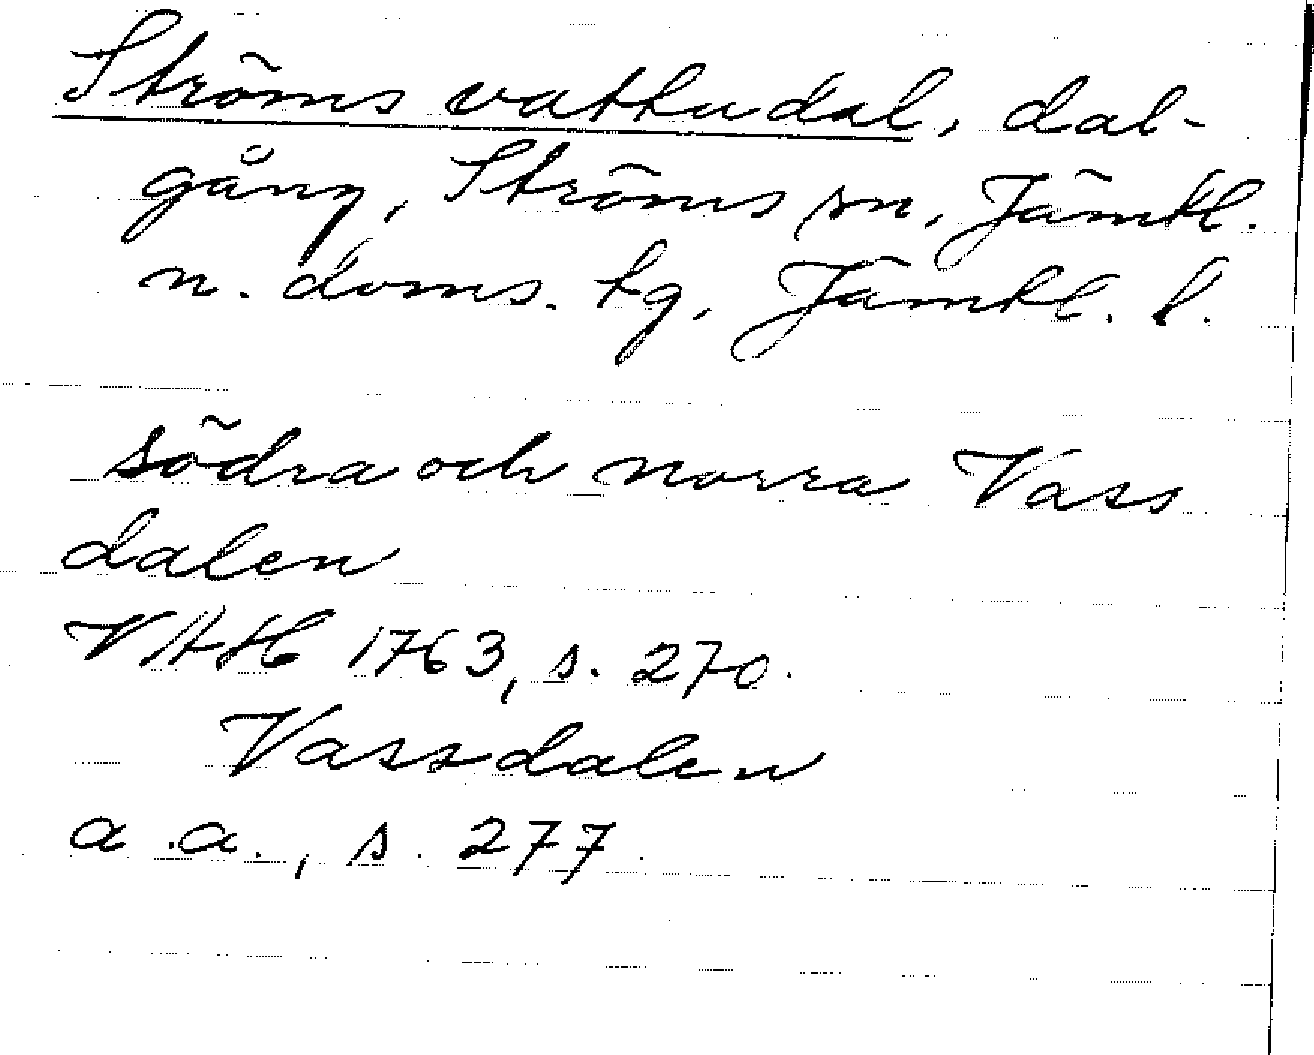 Ströms vattudal, dal-
gång, Ströms sn, Jämtl.
n. doms. tg, Jämtl. l.
södra och norra Vass
dalen
VAH 1763, s. 270.
Vassdalen
a.a., s. 277.